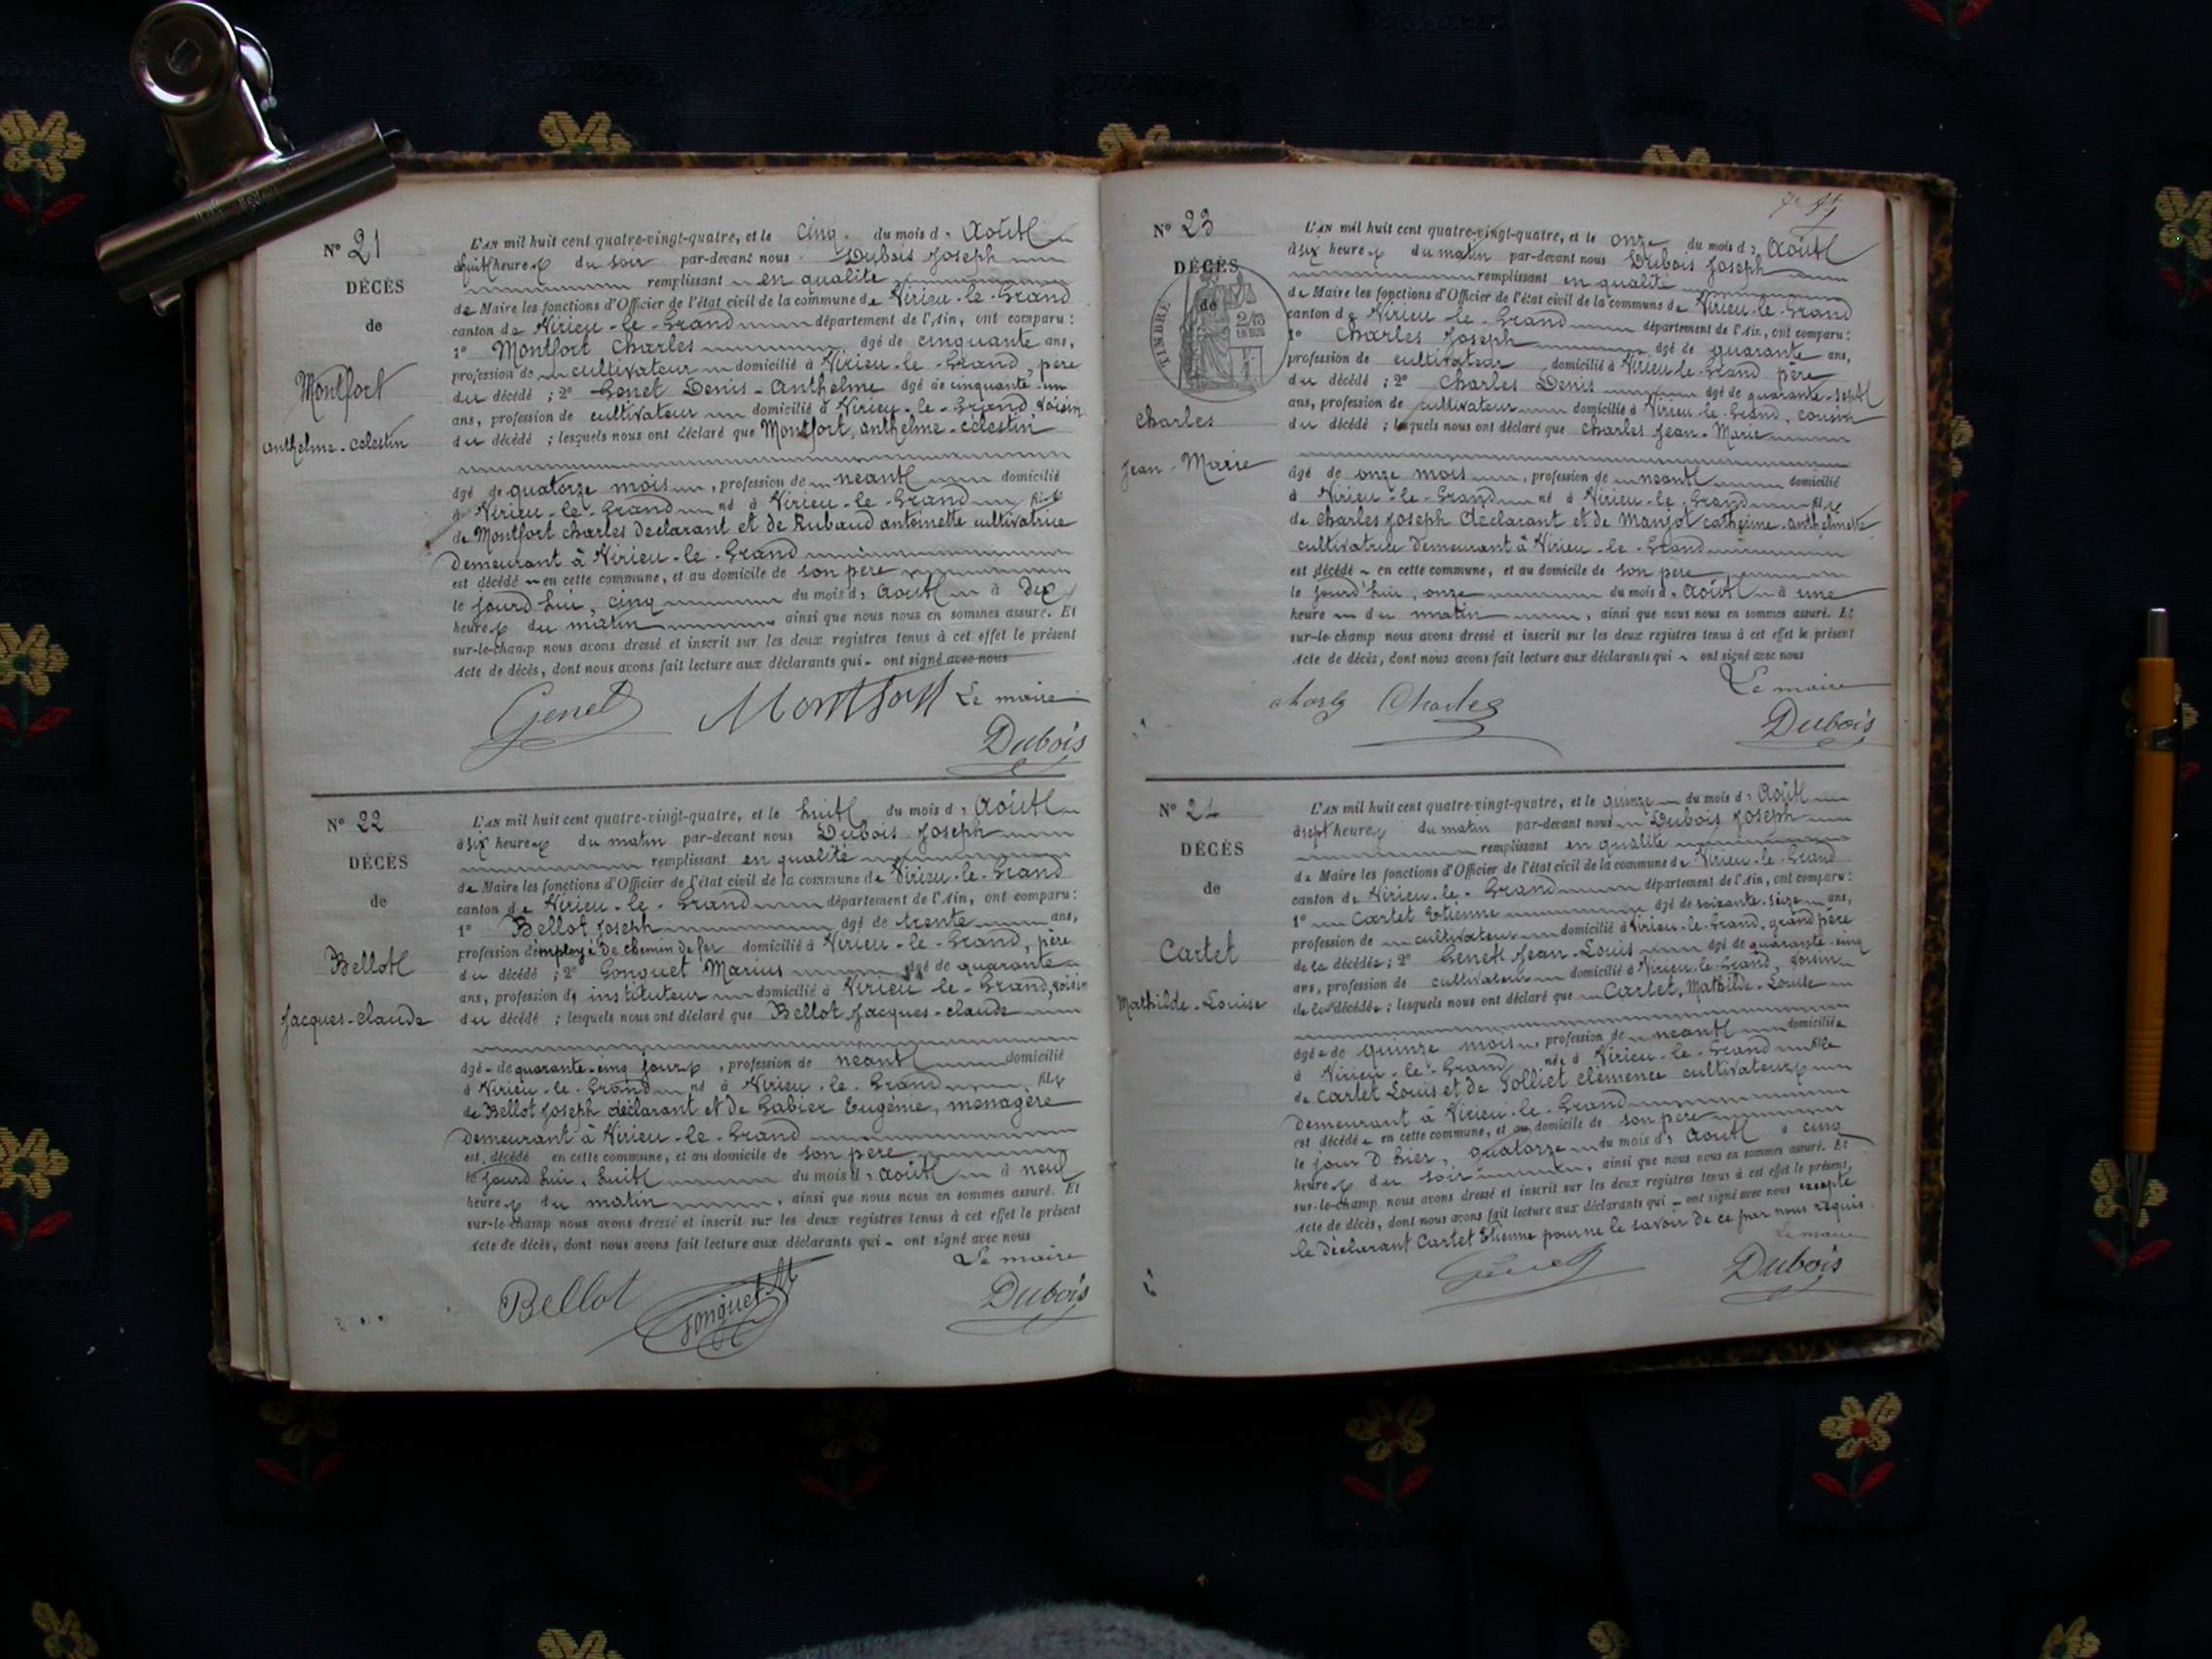 N° 21
DÉCÈS
de
Montfort
anthelme-celestin
L'AN mil huit cent quatre-vingt-quatre, et le cinq du mois d' Août
à huit heures du soir par-devant nous Dubois Joseph
remplissant en qualité
de Maire les fonctions d'Officier de l'état civil de la commune de Virieu-le-Grand
canton de Virieu-le-Grand département de l'Ain, ont comparu :
1° Montfort Charles âgé de cinquante ans,
profession de cultivateur domicilié à Virieu-le-Grand, père
du décédé ; 2° Genet Denis-Anthelme âgé de cinquante-un
ans, profession de cultivateur domicilié à Virieu-le-Grand, voisin
du décédé ; lesquels nous ont déclaré que Montfort, anthelme-celestin
âgé de quatorze mois, profession de neant domicilié
à Virieu-le-Grand né à Virieu-le-Grand fils
de Montfort charles declarant et de Rubaud antoinette cultivatrice
demeurant à Virieu-le-Grand
est décédé en cette commune, et au domicile de son père
le jourd'hui, cinq du mois d' Août à dix
heures du matin ainsi que nous nous en sommes assuré. Et
sur-le-champ nous avons dressé et inscrit sur les deux registres tenus à cet effet le présent
Acte de décès, dont nous avons fait lecture aux déclarants qui ont signé avec nous
Genet Montfort Le maire
Dubois
N° 22
DÉCÈS
de
Bellot
Jacques-claude
L'AN mil huit cent quatre-vingt-quatre, et le huit du mois d' Août
à six heures du matin par-devant nous Dubois Joseph
remplissant en qualité
de Maire les fonctions d'Officier de l'état civil de la commune de Virieu-le-Grand
canton de Virieu-le-Grand département de l'Ain, ont comparu :
1° Bellot Joseph âgé de trente ans,
profession d'employé de chemin de fer domicilié à Virieu-le-Grand, père
du décédé ; 2° Gonguet Marius âgé de quarante
ans, profession d' instituteur domicilié à Virieu-le-Grand, voisin
du décédé ; lesquels nous ont déclaré que Bellot Jacques-claude
âgé de quarante-cinq jours, profession de neant domicilié
à Virieu-le-Grand né à Virieu-le-Grand fils
de Bellot Joseph déclarant et de Gabier Eugénie, menagère
demeurant à Virieu-le-Grand
est décédé en cette commune, et au domicile de son père
le jourd'hui, huit du mois d' août à neuf
heures du matin, ainsi que nous nous en sommes assuré. Et
sur-le-champ nous avons dressé et inscrit sur les deux registres tenus à cet effet le présent
Acte de décès, dont nous avons fait lecture aux déclarants qui ont signé avec nous
Le maire
Bellot Gonguet M Dubois
N° 23
DÉCÈS
de
TIMBRE
charles
Jean-Marie
L'AN mil huit cent quatre-vingt-quatre, et le onze du mois d' Août
à six heures du matin par-devant nous Dubois Joseph
remplissant en qualité
de Maire les fonctions d'Officier de l'état civil de la commune de Virieu-le-Grand
canton de Virieu-le-Grand département de l'Ain, ont comparu :
1° Charles Joseph âgé de quarante ans,
profession de cultivateur domicilié à Virieu-le-Grand père
du décédé ; 2° Charles Denis âgé de quarante-sept
ans, profession de cultivateur domicilié à Virieu-le-Grand, cousin
du décédé ; lesquels nous ont déclaré que Charles Jean-Marie
âgé de onze mois, profession de neant domicilié
à Virieu-le-Grand né à Virieu-le-Grand fils
de charles Joseph déclarant et de Manjot catherine-anthelmette
cultivatrice demeurant à Virieu-le-Grand
est décédé en cette commune, et au domicile de son père
le jourd'hui, onze du mois d' Août à une
heure du matin, ainsi que nous nous en sommes assuré. Et
sur-le-champ nous avons dressé et inscrit sur les deux registres tenus à cet effet le présent
Acte de décès, dont nous avons fait lecture aux déclarants qui ont signé avec nous
Le maire
Charles Dubois
N° 24
DÉCÈS
de
Cartet
Mathilde-Louise
L'AN mil huit cent quatre-vingt-quatre, et le quinze du mois d' Août
à sept heures du matin par-devant nous Dubois Joseph
remplissant en qualité
de Maire les fonctions d'Officier de l'état civil de la commune de Virieu-le-Grand
canton de Virieu-le-Grand département de l'Ain, ont comparu :
1° Cartet Etienne âgé de soixante-seize ans,
profession de cultivateur domicilié à Virieu-le-Grand, grand père
de la décédée ; 2° Genet Jean-Louis âgé de quarante-cinq
ans, profession de cultivateur domicilié à Virieu-le-Grand, voisin
de la décédée ; lesquels nous ont déclaré que Cartet, Mathilde-Louise
âgée de quinze mois, profession de neant domiciliée
à Virieu-le-Grand née à Virieu-le-Grand fille
de Cartet Louis et de Golliet clémence cultivateurs
demeurant à Virieu-le-Grand
est décédée en cette commune, et au domicile de son père
le jour d'hier, quatorze du mois d' Août à cinq
heures du soir, ainsi que nous nous en sommes assuré. Et
sur-le-champ nous avons dressé et inscrit sur les deux registres tenus à cet effet le présent
Acte de décès, dont nous avons fait lecture aux déclarants qui ont signé avec nous excepté
le déclarant Cartet Etienne pour ne le savoir de ce par nous requis
Le maire
Genet Dubois